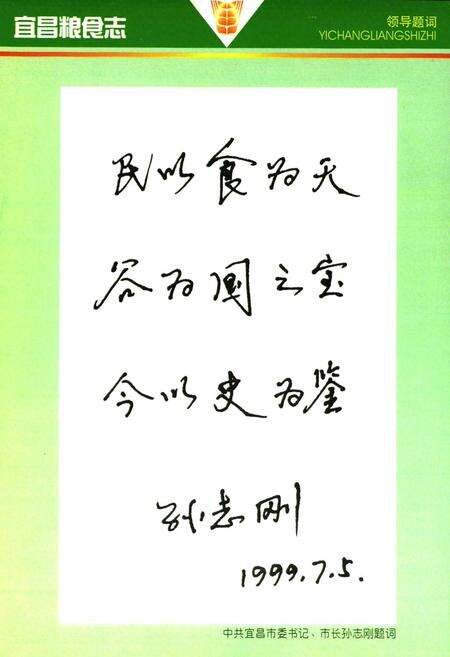 宜昌粮食志
领导题词
YICHANGLIANGSHIZHI
民以食为天
谷为国之宝
今以史为鉴
孙志刚
1999.7.5.
中共宜昌市委书记、市长孙志刚题词